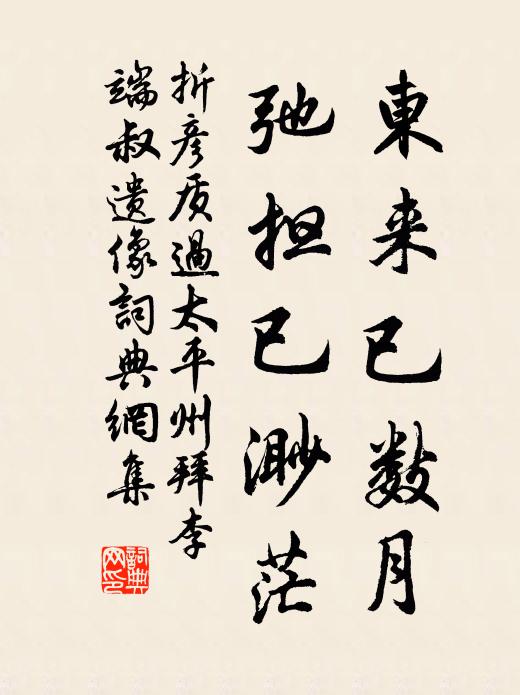 東来已数月
弛担已渺茫
折彦质過太平州拜李
端叔遗像詞典網集
詞典网印